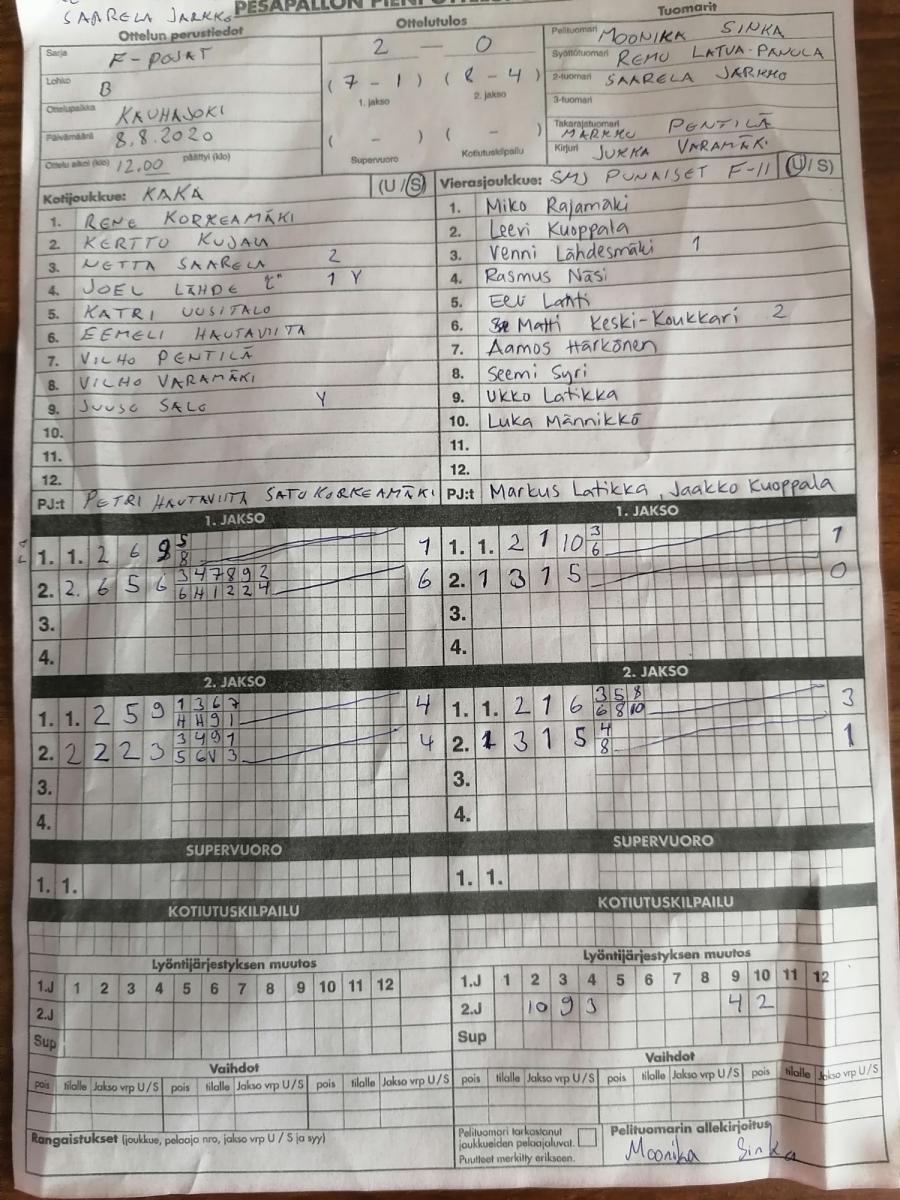 SAARELA JARKKO
PESÄPALLON PIENI OTTELU
Ottelun perustiedot
Ottelutulos
Tuomarit
Sarja F-POJAT
Lohko B
Ottelupaikka KAUHAJOKI
Päivämäärä 8.8.2020
Ottelu alkoi (klo) 12.00 päättyi (klo)
2 – 0
(7 – 1) (8 – 4)
1. jakso 2. jakso
( – ) ( – )
Supervuoro Kotiutuskilpailu
Pelituomari MOONIKA SINKA
Syöttötuomari REMU LATVA-PANULA
2-tuomari SAARELA JARKKO
3-tuomari
Takarajatuomari MARKKU PENTILÄ
Kirjuri JUKKA VARAMÄKI
Kotijoukkue: KAKA (U/S)
1. RENE KORKEAMÄKI
2. KERTTO KUJALA
3. NETTA SAARELA 2
4. JOEL LÄHDE 1 Y
5. KATRI UUSITALO
6. EEMELI HAUTAVIITA
7. VILHO PENTILÄ
8. VILHO VARAMÄKI
9. JUUSO SALO Y
10.
11.
12.
PJ:t PETRI HAUTAVIITA SATU KORKEAMÄKI
Vierasjoukkue: SMJ PUNAISET F-11 (U/S)
1. Miko Rajamäki
2. Leevi Kuoppala
3. Venni Lähdesmäki 1
4. Rasmus Näsi
5. Eeli Lahti
6. Matti Keski-Koukkari 2
7. Aamos Härkönen
8. Seemi Syri
9. Ukko Latikka
10. Luka Männikkö
11.
12.
PJ:t Markus Latikka, Jaakko Kuoppala
1. JAKSO
1. 1. 2 6 9 5 1
8
2. 2. 6 5 6 3 4 7 8 9 2 6
6 4 1 2 2 4
3.
4.
1. JAKSO
1. 1. 2 1 10 3 1
6
2. 1 3 1 5 0
3.
4.
2. JAKSO
1. 1. 2 5 9 1 3 6 7 4
4 4 9 1
2. 2 2 2 3 3 4 9 1 4
5 6 V 3
3.
4.
2. JAKSO
1. 1. 2 1 6 3 5 8 3
6 8 10
2. 1 3 1 5 4 1
8
3.
4.
SUPERVUORO
1. 1.
SUPERVUORO
1. 1.
KOTIUTUSKILPAILU
KOTIUTUSKILPAILU
Lyöntijärjestyksen muutos
1.J 1 2 3 4 5 6 7 8 9 10 11 12
2.J
Sup
Lyöntijärjestyksen muutos
1.J 1 2 3 4 5 6 7 8 9 10 11 12
2.J 10 9 3 4 2
Sup
Vaihdot
pois tilalle Jakso vrp U/S pois tilalle Jakso vrp U/S pois tilalle Jakso vrp U/S
Vaihdot
pois tilalle Jakso vrp U/S pois tilalle Jakso vrp U/S pois tilalle Jakso vrp U/S
Rangaistukset (joukkue, pelaaja nro, jakso vrp U/S ja syy)
Pelituomari tarkastanut
joukkueiden pelaajaluvat.
Puutteet merkitty erikseen.
Pelituomarin allekirjoitus
Moonika Sinka